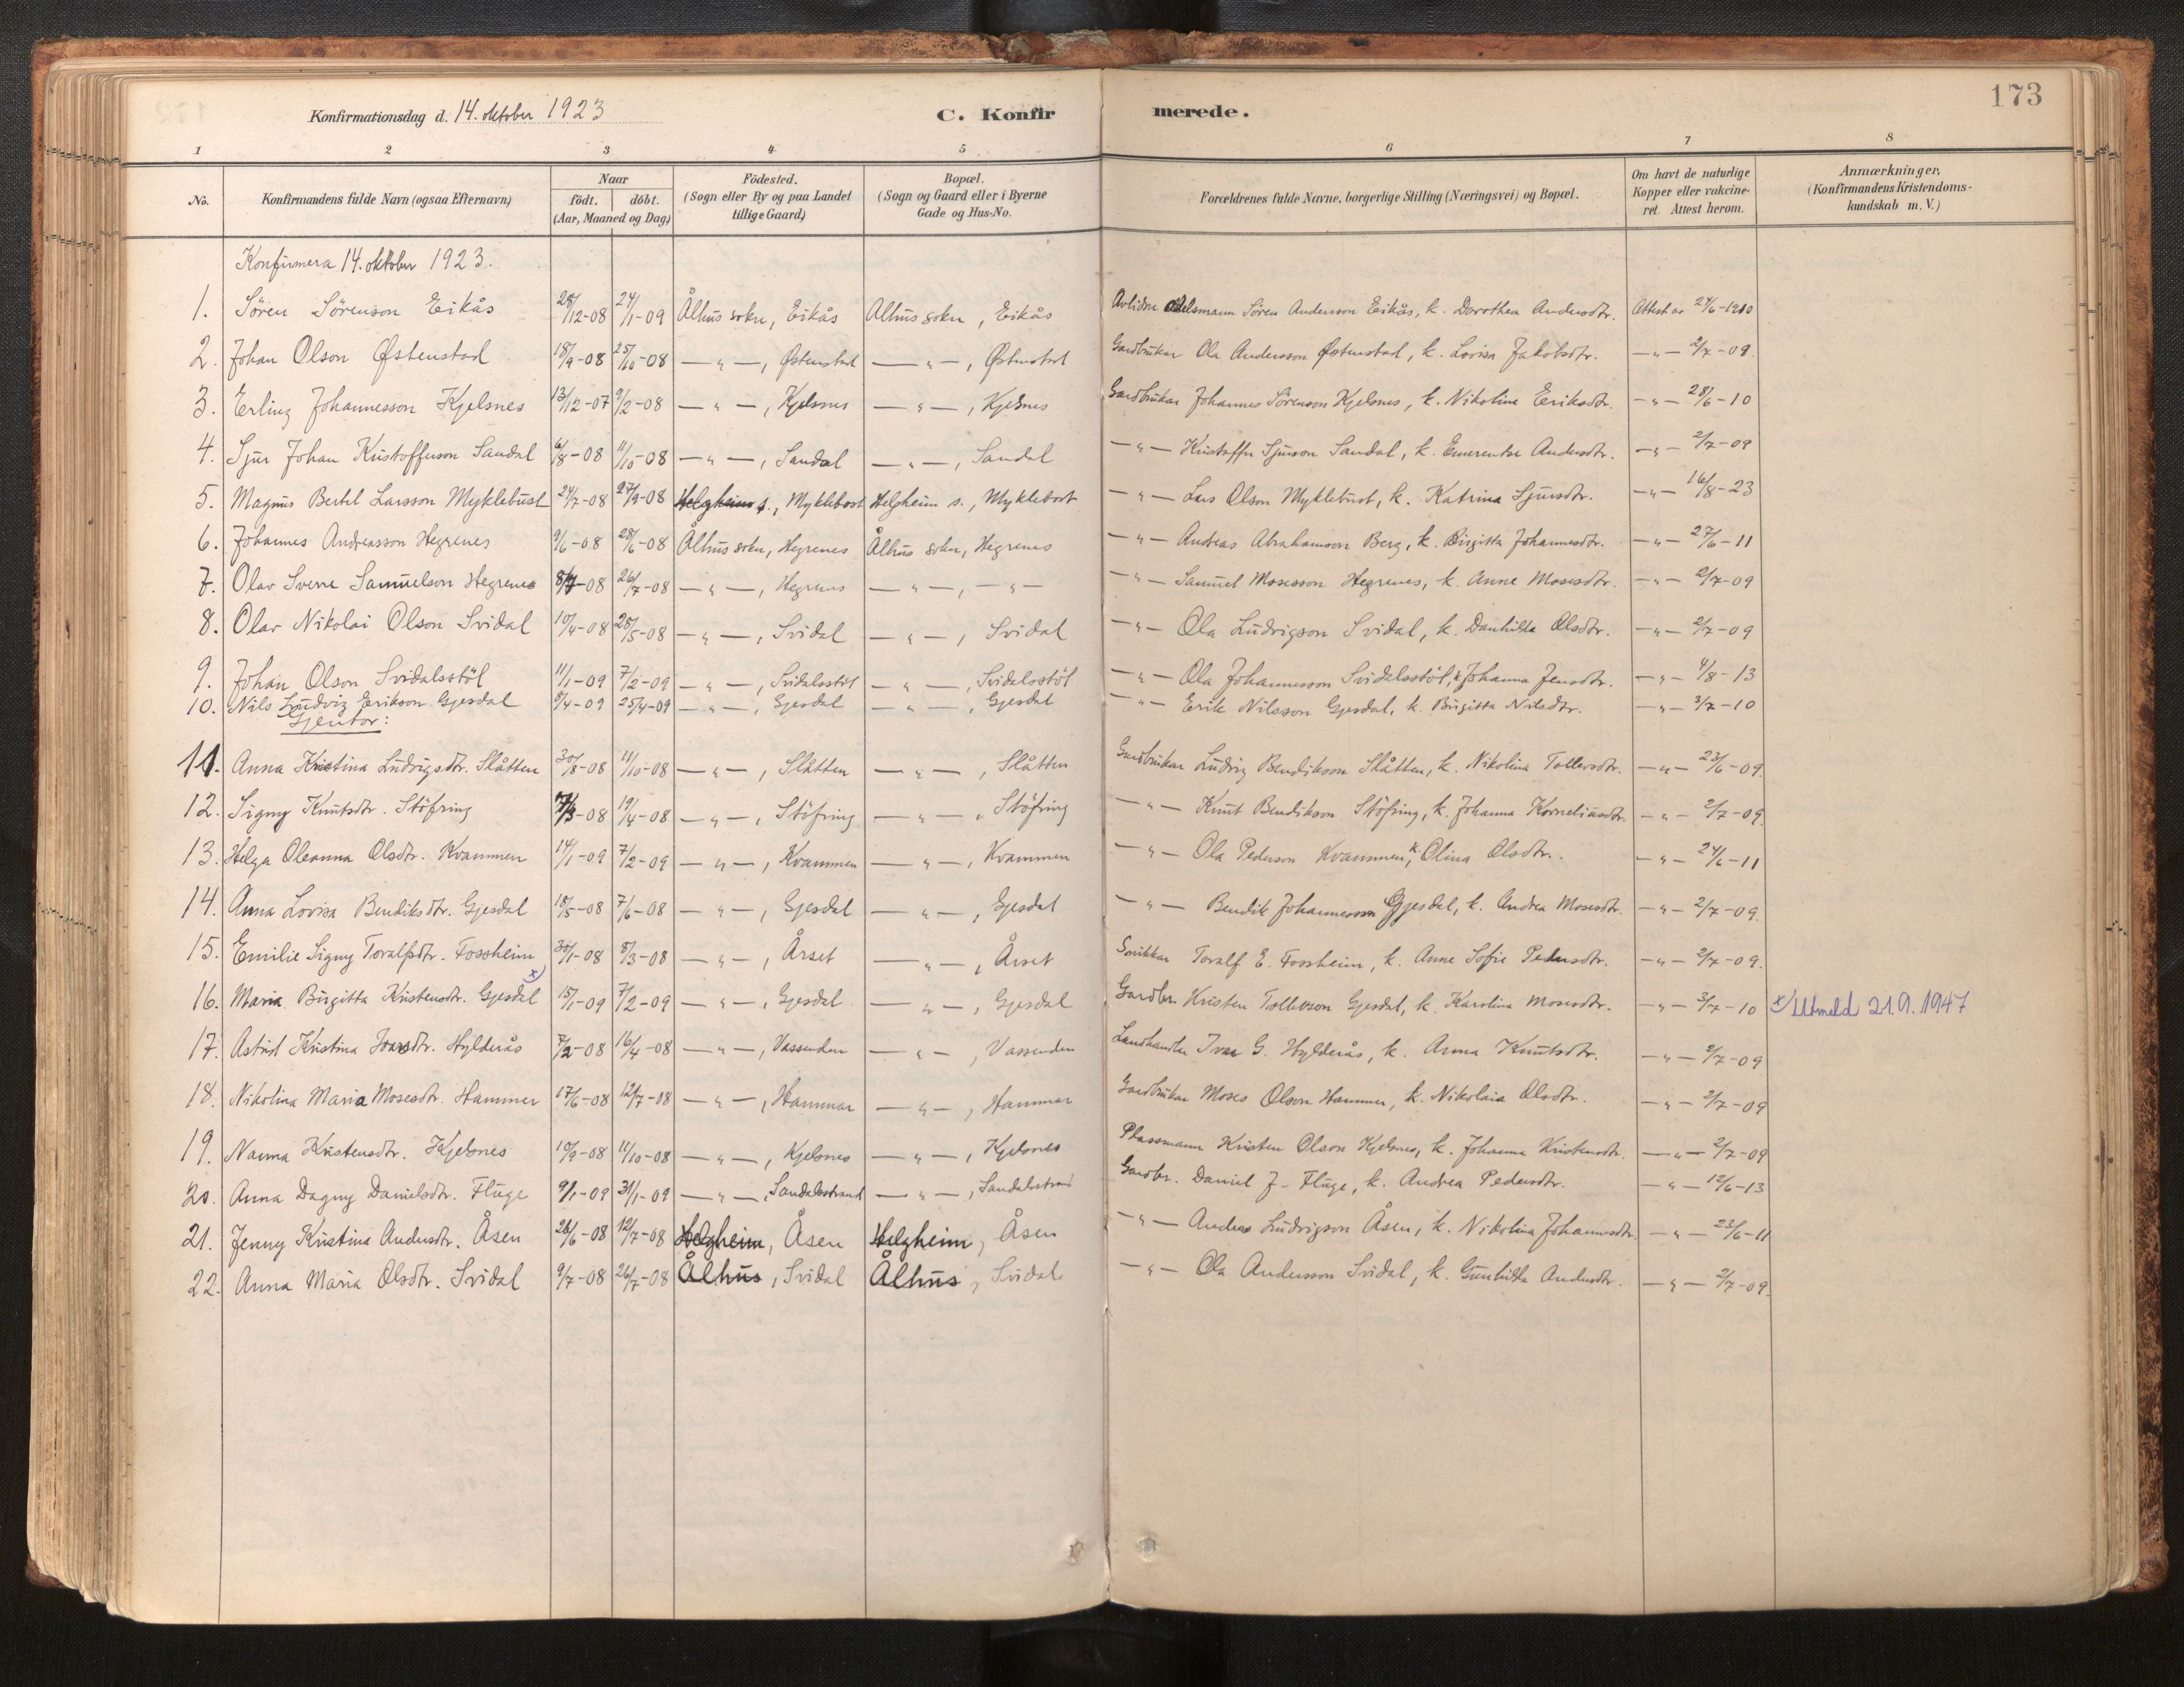 173
Konfirmationsdag d. 14. oktober 1923 C. Konfirmerede.
1 2 3 4 5 6 7 8
No. Konfirmandens fulde Navn (ogsaa Efternavn) Naar födt. döbt. (Aar, Maaned og Dag) Födested. (Sogn eller By og paa Landet tillige Gaard) Bopæl. (Sogn og Gaard eller i Byerne Gade og Hus-No. Forældrenes fulde Navne, borgerlige Stilling (Næringsvei) og Bopæl. Om havt de naturlige Kopper eller vakcineret. Attest herom. Anmærkninger. (Konfirmandens Kristendomskundskab m. V.)
Konfirmera 14. oktober 1923.
1. Sören Sörenson Eikås 28/12-08 24/1-09 Ålhus sokn, Eikås Ålhus sokn, Eikås Avlidne Ødelsmann Sören Andersson Eikås, k. Dorothea Andersdtr. Attest av 24/6-1910
2. Johan Olson Østenstad 18/9-08 25/10-08 — " —, Østenstad — " —, Østenstad Gardbrukar Ola Andersson Østenstad, k. Lovisa Jakobsdtr. — " — 2/7-09.
3. Erling Johannesson Kjelsnes 13/12-07 9/2-08 — " —, Kjelsnes — " —, Kjelsnes Gardbrukar Johannes Sörenson Kjelsnes, k. Nikoline Eriksdtr. — " — 28/6-10
4. Sjur Johan Kristofferson Sandal 6/8-08 11/10-08 — " —, Sandal — " —, Sandal — " — Kristoffer Sjurson Sandal, k. Emerentse Andersdtr. — " — 2/7-09
5. Magnus Bertel Larsson Myklebust 24/7-08 27/9-08 Helgheim s., Myklebost Helgheim s., Myklebost — " — Lars Olson Myklebust, k. Katrina Sjursdtr. — " — 16/8-23
6. Johannes Andreasson Hegrenes 9/6-08 28/6-08 Ålhus sokn, Hegrenes Ålhus sokn, Hegrenes — " — Andreas Abrahamson Berg, k. Birgitta Johannesdtr. — " — 27/6-11
7. Olav Sverre Samuelson Hegrenes 8/7-08 26/7-08 — " —, Hegrenes — " —, — " — — " — Samuel Mosesson Hegrenes, k. Anne Mosesdtr. — " — 2/7-09
8. Olav Nikolai Olson Svidal 10/4-08 28/5-08 — " —, Svidal — " —, Svidal — " — Ola Ludvigson Svidal, k. Danhilda Olsdtr. — " — 2/7-09
9. Johan Olson Svidalsstöl 11/1-09 7/2-09 — " —, Svidalsstöl — " —, Svidalsstöl — " — Ola Johannesson Svidalsstöl, k. Johanna Jensdtr. — " — 4/8-13
10. Nils Ludvig Erikson Gjesdal 8/4-09 25/4-09 — " —, Gjesdal — " —, Gjesdal — " — Erik Nilsson Gjesdal, k. Birgitta Nilsdtr. — " — 3/7-10
Gjentor:
11. Anna Kristina Ludvigsdtr. Slåtten 30/8-08 11/10-08 — " —, Slåtten — " —, Slåtten Gardbrukar Ludvig Bendikson Slåtten, k. Nikolina Tollevsdtr. — " — 23/6-09.
12. Signy Knutsdtr. Stöfring 7/3-08 19/4-08 — " —, Stöfring — " —, Stöfring — " — Knut Bendikson Stöfring, k. Johanna Korneliusdtr. — " — 2/7-09.
13. Helga Oleanna Olsdtr. Kvammen 14/1-09 7/2-09 — " —, Kvammen — " —, Kvammen — " — Ola Pederson Kvammen, k. Olina Olsdtr. — " — 24/6-11
14. Anna Lovisa Bendiksdtr. Gjesdal 18/5-08 7/6-08 — " —, Gjesdal — " —, Gjesdal — " — Bendik Johannesson Gjesdal, k. Andrea Mosesdtr. — " — 2/7-09.
15. Emilie Signy Toralfsdtr. Fossheim 30/1-08 8/3-08 — " —, Årset — " —, Årset Snikkar Toralf E. Fossheim, k. Anne Sofie Pedersdtr. — " — 2/7-09.
16. Maria Birgitta Kristensdtr. Gjesdal x) 15/1-09 7/2-09 — " —, Gjesdal — " —, Gjesdal Gardbr. Kristen Tollevson Gjesdal, k. Karolina Mosesdtr. — " — 3/7-10 x) Utmeld 21.9.1947
17. Astrid Kristina Ivarsdtr. Hylderås 7/2-08 16/4-08 — " —, Vassenden — " —, Vassenden Landhandlar Ivar G. Hylderås, k. Anna Knutsdtr. — " — 2/7-09
18. Nikolina Maria Mosesdtr. Hammer 17/6-08 12/7-08 — " —, Hammar — " —, Hammar Gardbrukar Moses Olson Hammer, k. Nikolaia Olsdtr. — " — 2/7-09
19. Nanna Kristensdtr. Kjelsnes 10/9-08 11/10-08 — " —, Kjelsnes — " —, Kjelsnes Plassmann Kristen Olson Kjelsnes, k. Johanna Kristensdtr. — " — 2/7-09
20. Anna Dagny Danielsdtr. Fluge 9/1-09 31/1-09 — " —, Sandalsstrand — " —, Sandalsstrand Gardbr. Daniel J. Fluge, k. Andrea Pedersdtr. — " — 12/6-13
21. Jenny Kristina Andersdtr. Åsen 26/6-08 12/7-08 Helgheim, Åsen Helgheim, Åsen — " — Anders Ludvigson Åsen, k. Nikolina Johannesdtr. — " — 23/6-11
22. Anna Maria Olsdtr. Svidal 9/7-08 26/7-08 Ålhus, Svidal Ålhus, Svidal — " — Ola Andersson Svidal, k. Gunhilda Andersdtr. — " — 2/7-09.